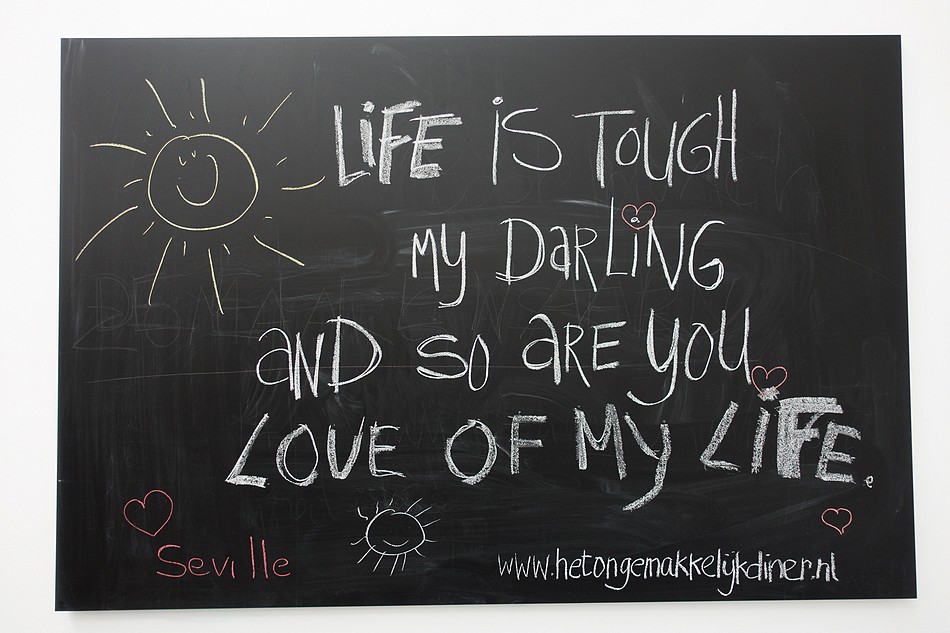 LiFE iS TOUGH
MY DaRLiNG
aND SO aRE YOU
LOVE OF MY LiFE.
Seville
www.hetongemakkelijkdiner.nl